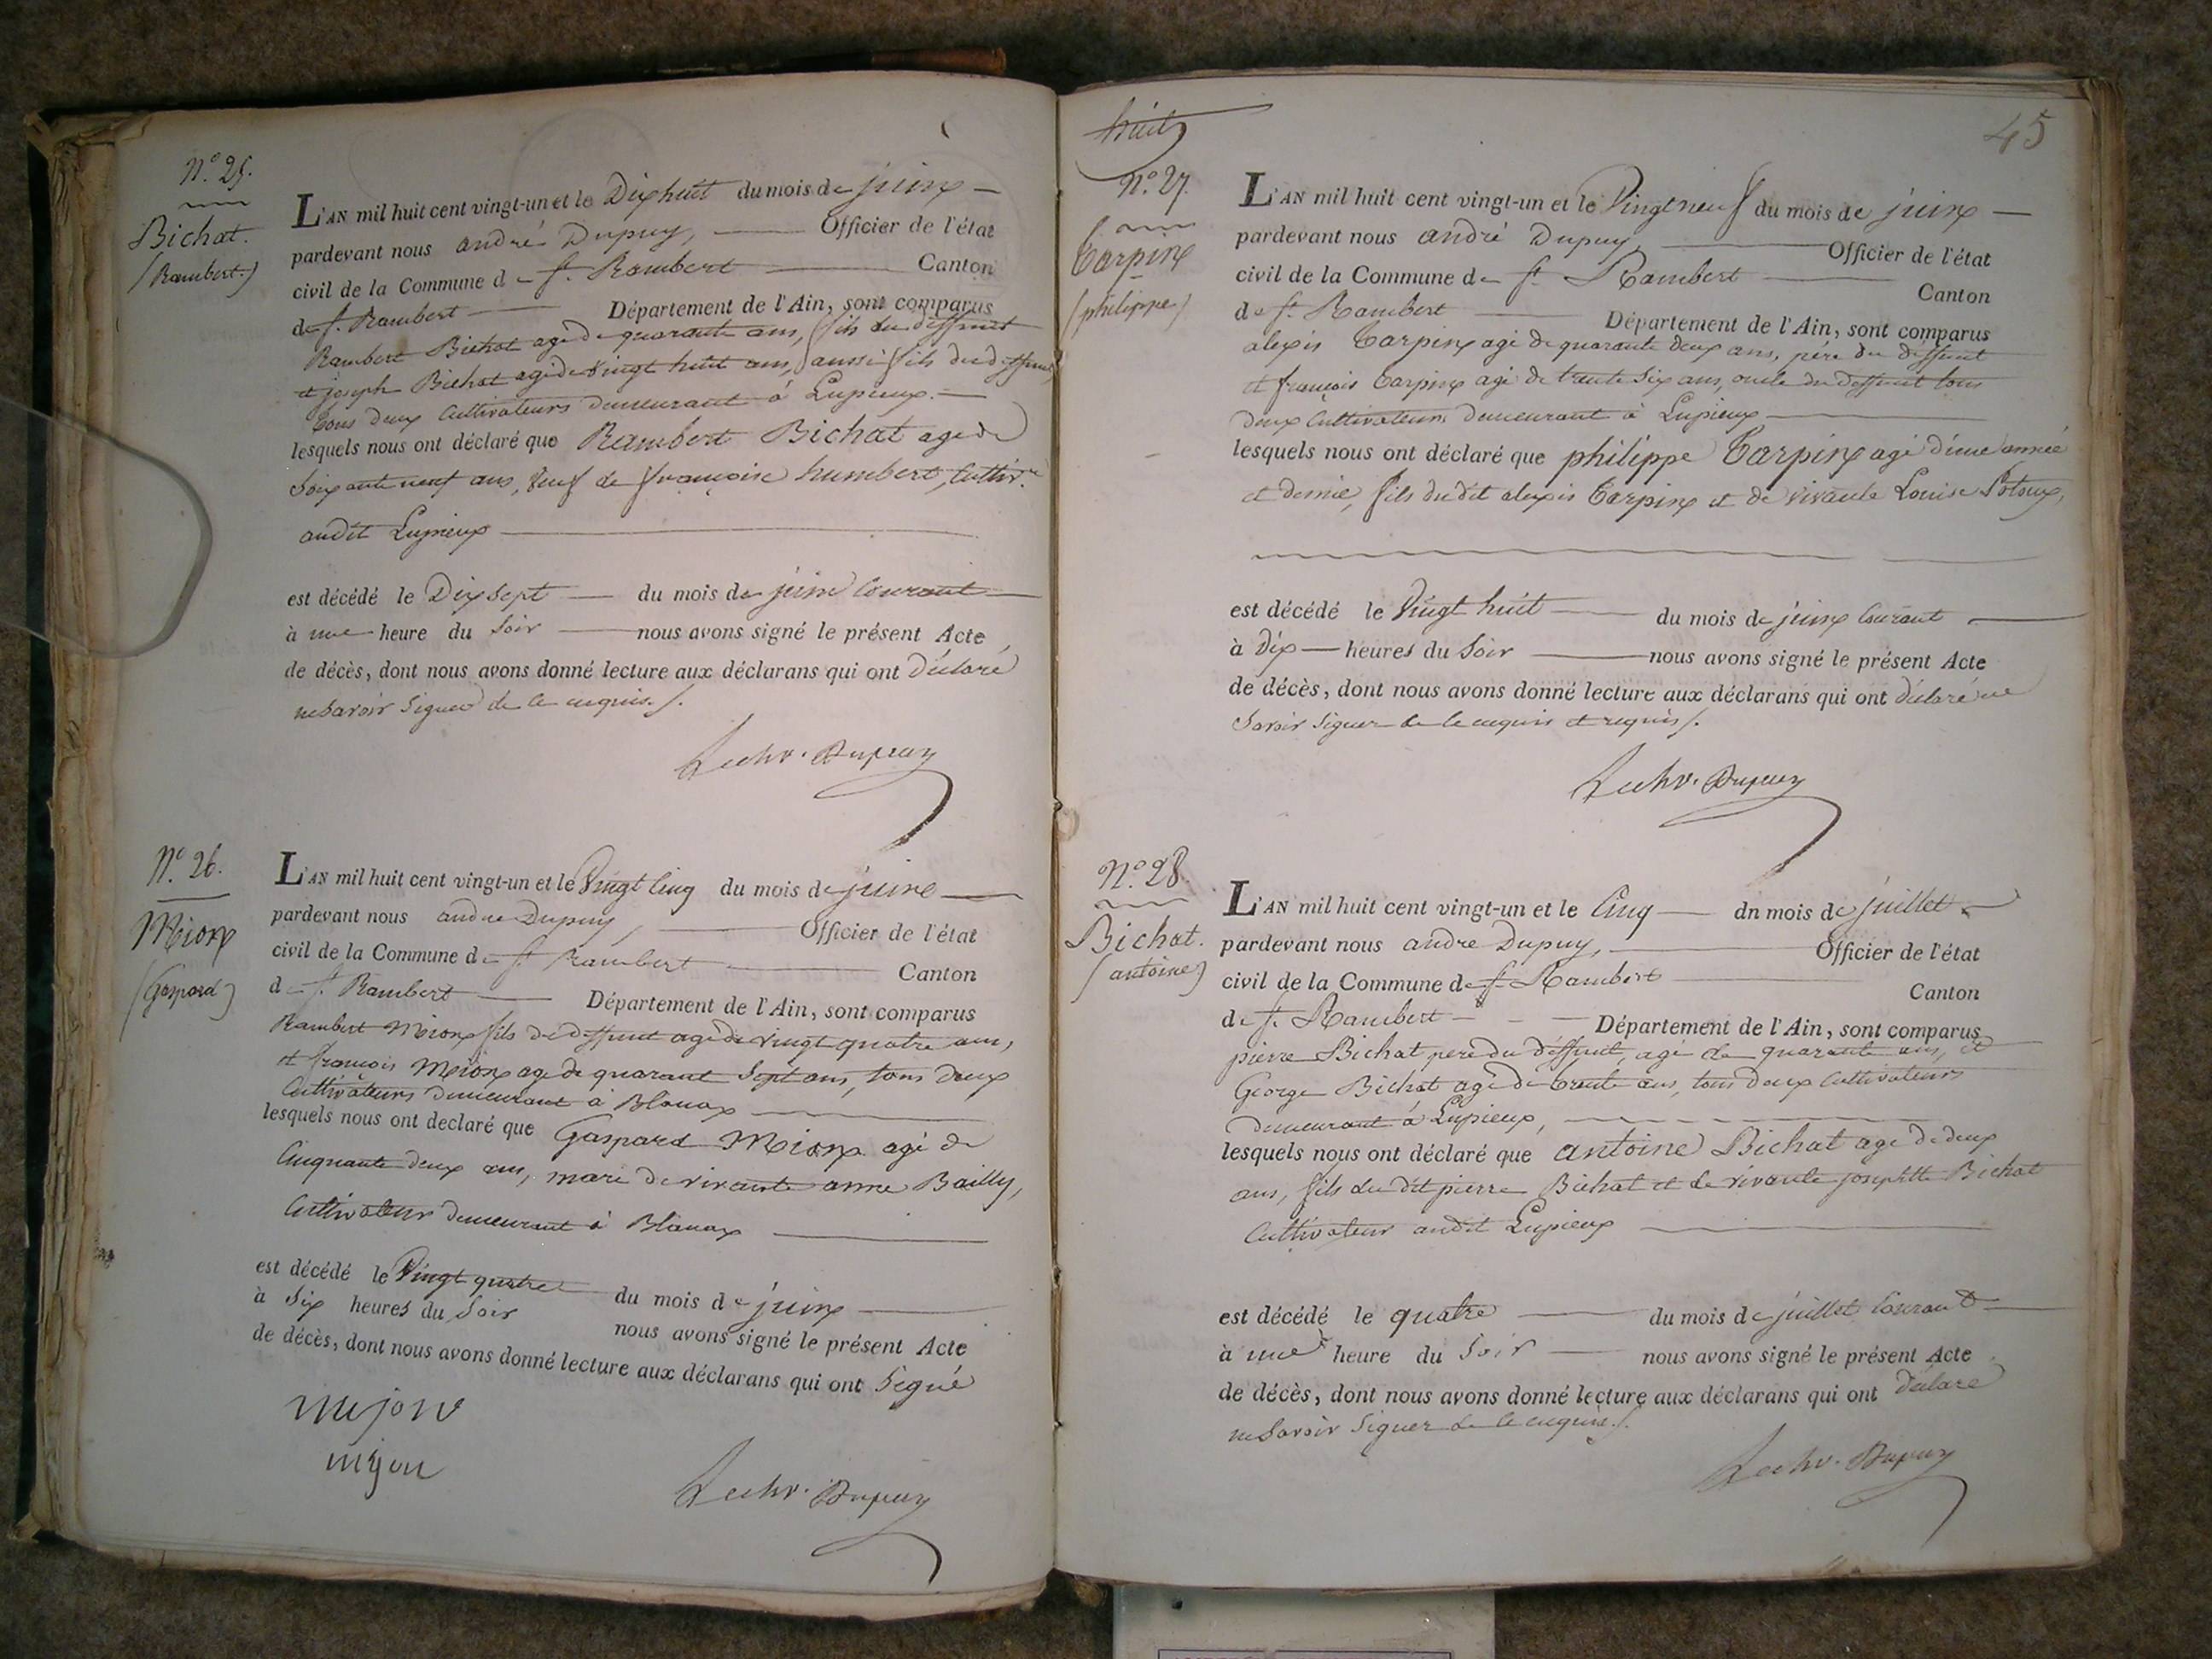 N.° 25.
Bichat.
(Rambert.)
L'AN mil huit cent vingt-un et le Dix huit du mois de juin
pardevant nous andré Dupuy, Officier de l'état
civil de la Commune de St. Rambert Canton
de St. Rambert Département de l'Ain, sont comparus
Rambert Bichat agé de quarante ans, fils du deffunt
et joseph Bichat agé de vingt huit ans, aussi fils du deffunt,
tous deux Cultivateurs demeurant à Lupieux.
lesquels nous ont déclaré que Rambert Bichat agé de
Soixante neuf ans, veuf de françoise humbert, Cultiv.r
audit Lupieux
est décédé le Dix Sept du mois de juin Courant
à une heure du Soir nous avons signé le présent Acte
de décès, dont nous avons donné lecture aux déclarans qui ont déclaré
ne Savoir Signer de ce enquis./.
Dupuy
N.° 26.
Mionx
(Gaspard)
L'AN mil huit cent vingt-un et le Vingt Cinq du mois de juin
pardevant nous andre Dupuy, Officier de l'état
civil de la Commune de St. Rambert Canton
de St. Rambert Département de l'Ain, sont comparus
Rambert Mionx fils de deffunt agé de vingt quatre ans,
et francois Mionx agé de quarant Sept ans, tous deux
Cultivateurs demeurant à Blanax
lesquels nous ont declaré que Gaspard Mionx agé de
Cinquante deux ans, mari de vivante anne Bailly,
Cultivateur demeurant à Blanax
est décédé le Vingt quatre du mois de juin
à Six heures du Soir nous avons signé le présent Acte
de décès, dont nous avons donné lecture aux déclarans qui ont Signé
mijon
Dupuy
huit
45
N.° 27.
Carpin
(philippe)
L'AN mil huit cent vingt-un et le Vingt neuf du mois de juin
pardevant nous andré Dupuy, Officier de l'état
civil de la Commune de St. Rambert Canton
de St. Rambert Département de l'Ain, sont comparus
alexis Carpin agé de quarante deux ans, père du deffunt
et françois Carpin agé de trante Six ans, oncle du deffunt tous
deux Cultivateurs demeurant à Lupieux
lesquels nous ont déclaré que philippe Carpin agé d'une année
et demie, fils du dit alexis Carpin et de vivante Louise
est décédé le Vingt huit du mois de juin Courant
à Dix heures du Soir nous avons signé le présent Acte
de décès, dont nous avons donné lecture aux déclarans qui ont déclaré ne
Savoir Signer de ce enquis et requis/.
Dupuy
N.° 28.
Bichat.
(antoine)
L'AN mil huit cent vingt-un et le Cinq dn mois de juillet
pardevant nous andre Dupuy, Officier de l'état
civil de la Commune de St. Rambert Canton
de St. Rambert Département de l'Ain, sont comparus
pierre Bichat pere du deffunt, agé de quarante ans, et
George Bichat agé de trante ans, tous deux Cultivateurs
demeurant à Lupieux,
lesquels nous ont déclaré que antoine Bichat agé de deux
ans, fils du dit pierre Bichat et de vivante josephtte Bichat
Cultivateur audit Lupieux
est décédé le quatre du mois de juillet Courant
à une heure du Soir nous avons signé le présent Acte
de décès, dont nous avons donné lecture aux déclarans qui ont déclaré
ne Savoir Signer de ce enquis./.
Dupuy